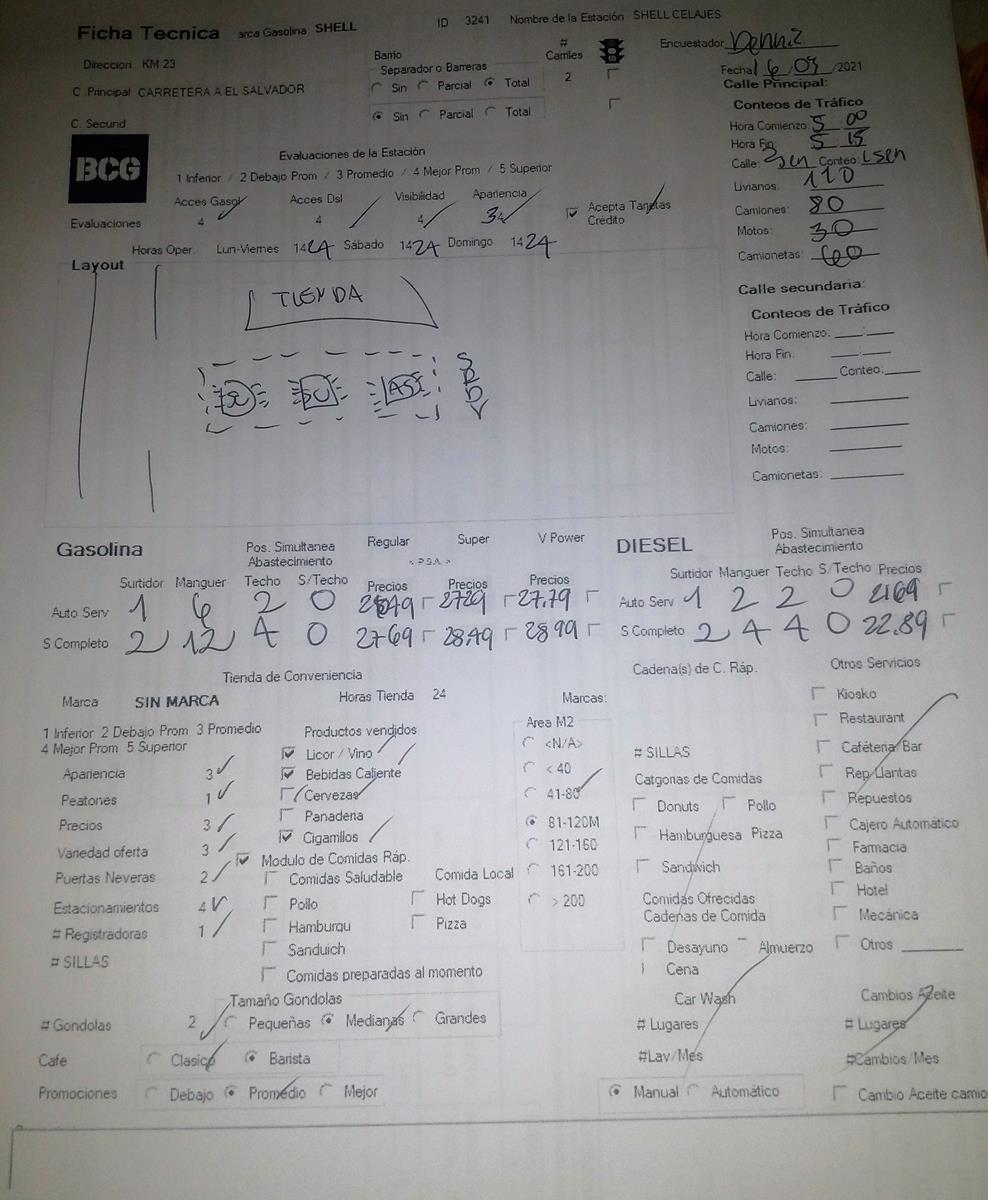 Ficha Tecnica arca Gasolina SHELL ID 3241 Nombre de la Estación SHELL CELAJES
Direccion KM 23
C Principal CARRETERA A EL SALVADOR
C. Secund
Barrio
Separador o Barreras
Sin Parcial Total
Sin Parcial Total
# Carriles
2
Encuestador
Fecha 16/09/2021
Calle Principal:
Conteos de Tráfico
Hora Comienzo: 5 00
Hora Fin: 5 15
Calle: Conteo:
Livianos: 110
Camiones: 80
Motos: 30
Camionetas: 60
Calle secundaria:
Conteos de Tráfico
Hora Comienzo: __:__
Hora Fin: __:__
Calle: ____ Conteo: ____
Livianos:
Camiones:
Motos:
Camionetas:
BCG
Evaluaciones de la Estación
1 Inferior / 2 Debajo Prom / 3 Promedio / 4 Mejor Prom / 5 Superior
Acces Gasol Acces Dsl Visibilidad Apariencia
Evaluaciones 4 4 4 3
Acepta Tarjetas
Crédito
Horas Oper. Lun-Viernes 14 24 Sábado 14 24 Domingo 14 24
Layout
TIENDA
Gasolina
Pos. Simultanea
Abastecimiento
Regular Super V Power
Surtidor Manguer Techo S/Techo Precios Precios Precios
Auto Serv 1 6 2 0 2729 27.79
S Completo 2 12 4 0 2769 28.49 28.99
DIESEL
Pos. Simultanea
Abastecimiento
Surtidor Manguer Techo S/Techo Precios
Auto Serv 1 2 2 0 2169
S Completo 2 4 4 0 22.89
Tienda de Conveniencia
Marca SIN MARCA Horas Tienda 24
1 Inferior 2 Debajo Prom 3 Promedio
4 Mejor Prom 5 Superior
Apariencia 3
Peatones 1
Precios 3
Variedad oferta 3
Puertas Neveras 2
Estacionamientos 4
# Registradoras 1
# SILLAS
Productos vendidos
Licor / Vino
Bebidas Caliente
Cervezas
Panaderia
Cigarrillos
Modulo de Comidas Ráp.
Comidas Saludable Comida Local
Pollo Hot Dogs
Hamburgu Pizza
Sanduich
Comidas preparadas al momento
Marcas:
Area M2
<N/A>
< 40
41-80
81-120M
121-160
161-200
> 200
# Gondolas 2
Tamaño Gondolas
Pequeñas Medianas Grandes
Cafe Clasico Barista
Promociones Debajo Promedio Mejor
Cadena(s) de C. Ráp.
# SILLAS
Catgorias de Comidas
Donuts Pollo
Hamburguesa Pizza
Sandwich
Comidas Ofrecidas
Cadenas de Comida
Desayuno Almuerzo
Cena
Car Wash
# Lugares
#Lav/Mes
Manual Automático
Otros Servicios
Kiosko
Restaurant
Cafeteria/Bar
Rep Llantas
Repuestos
Cajero Automático
Farmacia
Baños
Hotel
Mecánica
Otros
Cambios Aceite
# Lugares
#Cambios/Mes
Cambio Aceite camio